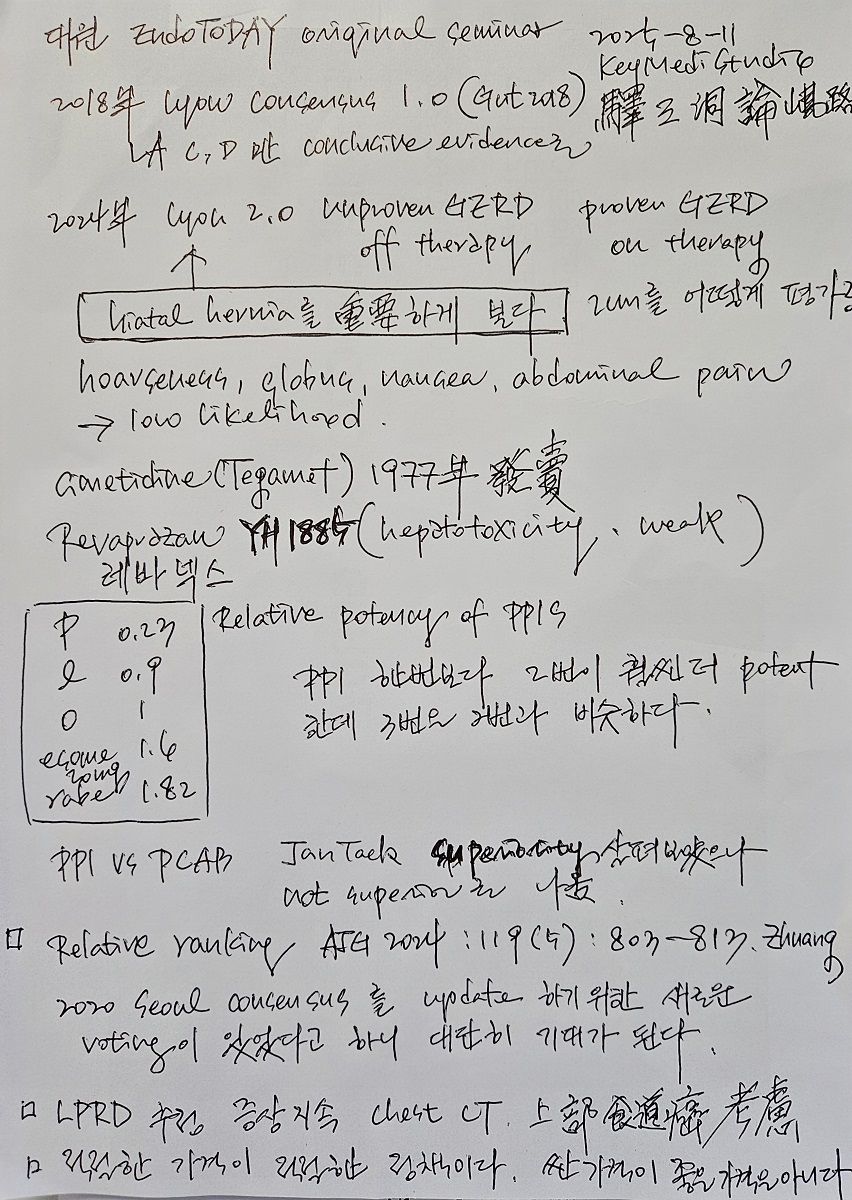 대원 EndoTODAY original seminar 2025-8-11
KeyMediStudio
2018年 Lyon consensus 1.0 (Gut 2018) 驛三洞 論峴路
LA C, D 만 conclusive evidence로
2024年 Lyon 2.0 unproven GERD proven GERD
off therapy on therapy
hiatal hernia를 重要하게 보다. 2cm를 어떻게 평가
hoarseness, globus, nausea, abdominal pain
→ low likelihood.
Cimetidine (Tegamet) 1977年 發賣
Revaprazan YH1885 (hepatotoxicity, weak)
레바넥스
Relative potency of PPIs
P 0.23
l 0.9
O 1
esome 1.6
20mg
rabe 1.82
PPI 한번보다 2번이 훨씬 더 potent
한데 3번은 2번과 비슷하다.
PPI vs PCAB Jan Tack superiority 살펴보았으나
not superior로 나옴.
□ Relative ranking AJG 2024:119(5):803-813. Zhuang
2020 Seoul consensus를 update 하기위한 새로운
voting이 있었다고 하니 대단히 기대가 된다.
□ LPRD 추정 증상지속 chest CT. 上部食道癌 考慮
□ 적절한 가격이 적절한 정책이다. 싼 가격이 좋은 가격은 아니다